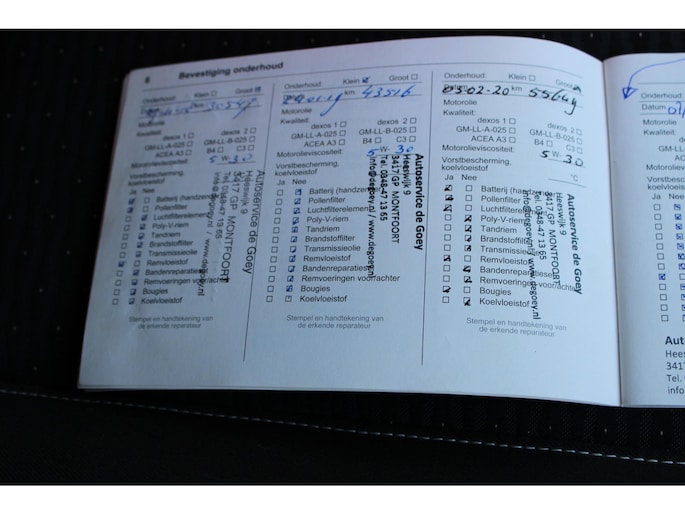 6 Bevestiging onderhoud
Onderhoud: Klein Groot
km
Motorolie
Kwaliteit:
dexos 1 dexos 2
GM-LL-A-025 GM-LL-B-025
ACEA A3 B4 C3
Motorolieviscositeit: 5 W- 30
Vorstbescherming,
koelvloeistof
Ja Nee
Batterij
Pollenfilter
Luchtfilterelement
Poly-V-riem
Tandriem
Brandstoffilter
Transmissieolie
Remvloeistof
Bandenreparatieset
Remvoeringen
Bougies
Koelvloeistof
Autoservice de Goey
Heeswijk 9
3417 GP MONTFOORT
Tel. 0348-47 13 65
info@degoey.nl / www.degoey.nl
Stempel en handtekening van
de erkende reparateur
Onderhoud: Klein Groot
km 43516
Motorolie
Kwaliteit:
dexos 1 dexos 2
GM-LL-A-025 GM-LL-B-025
ACEA A3 B4 C3
Motorolieviscositeit: 5 W- 30
Vorstbescherming,
koelvloeistof
Ja Nee
Batterij (handzender)
Pollenfilter
Luchtfilterelement
Poly-V-riem
Tandriem
Brandstoffilter
Transmissieolie
Remvloeistof
Bandenreparatieset
Remvoeringen voor/achter
Bougies
Koelvloeistof
Autoservice de Goey
Heeswijk 9
3417 GP MONTFOORT
Tel. 0348-47 13 65
info@degoey.nl / www.degoey.nl
Stempel en handtekening van
de erkende reparateur
Onderhoud: Klein Groot
03-02-20 km
Motorolie
Kwaliteit:
dexos 1 dexos 2
GM-LL-A-025 GM-LL-B-025
ACEA A3 B4 C3
Motorolieviscositeit: 5 W- 30
Vorstbescherming,
koelvloeistof °C
Ja Nee
Batterij (handzender)
Pollenfilter
Luchtfilterelement
Poly-V-riem
Tandriem
Brandstoffilter
Transmissieolie
Remvloeistof
Bandenreparatieset
Remvoeringen voor/achter
Bougies
Koelvloeistof
Autoservice de Goey
Heeswijk 9
3417 GP MONTFOORT
Tel. 0348-47 13 65
info@degoey.nl / www.degoey.nl
Stempel en handtekening van
de erkende reparateur
Onderhoud:
Datum
Motorolie
Kwaliteit:
Motorolie
Vorstbesc
koelvloeist
Ja Nee
Aut
Hees
3417
Tel.
info